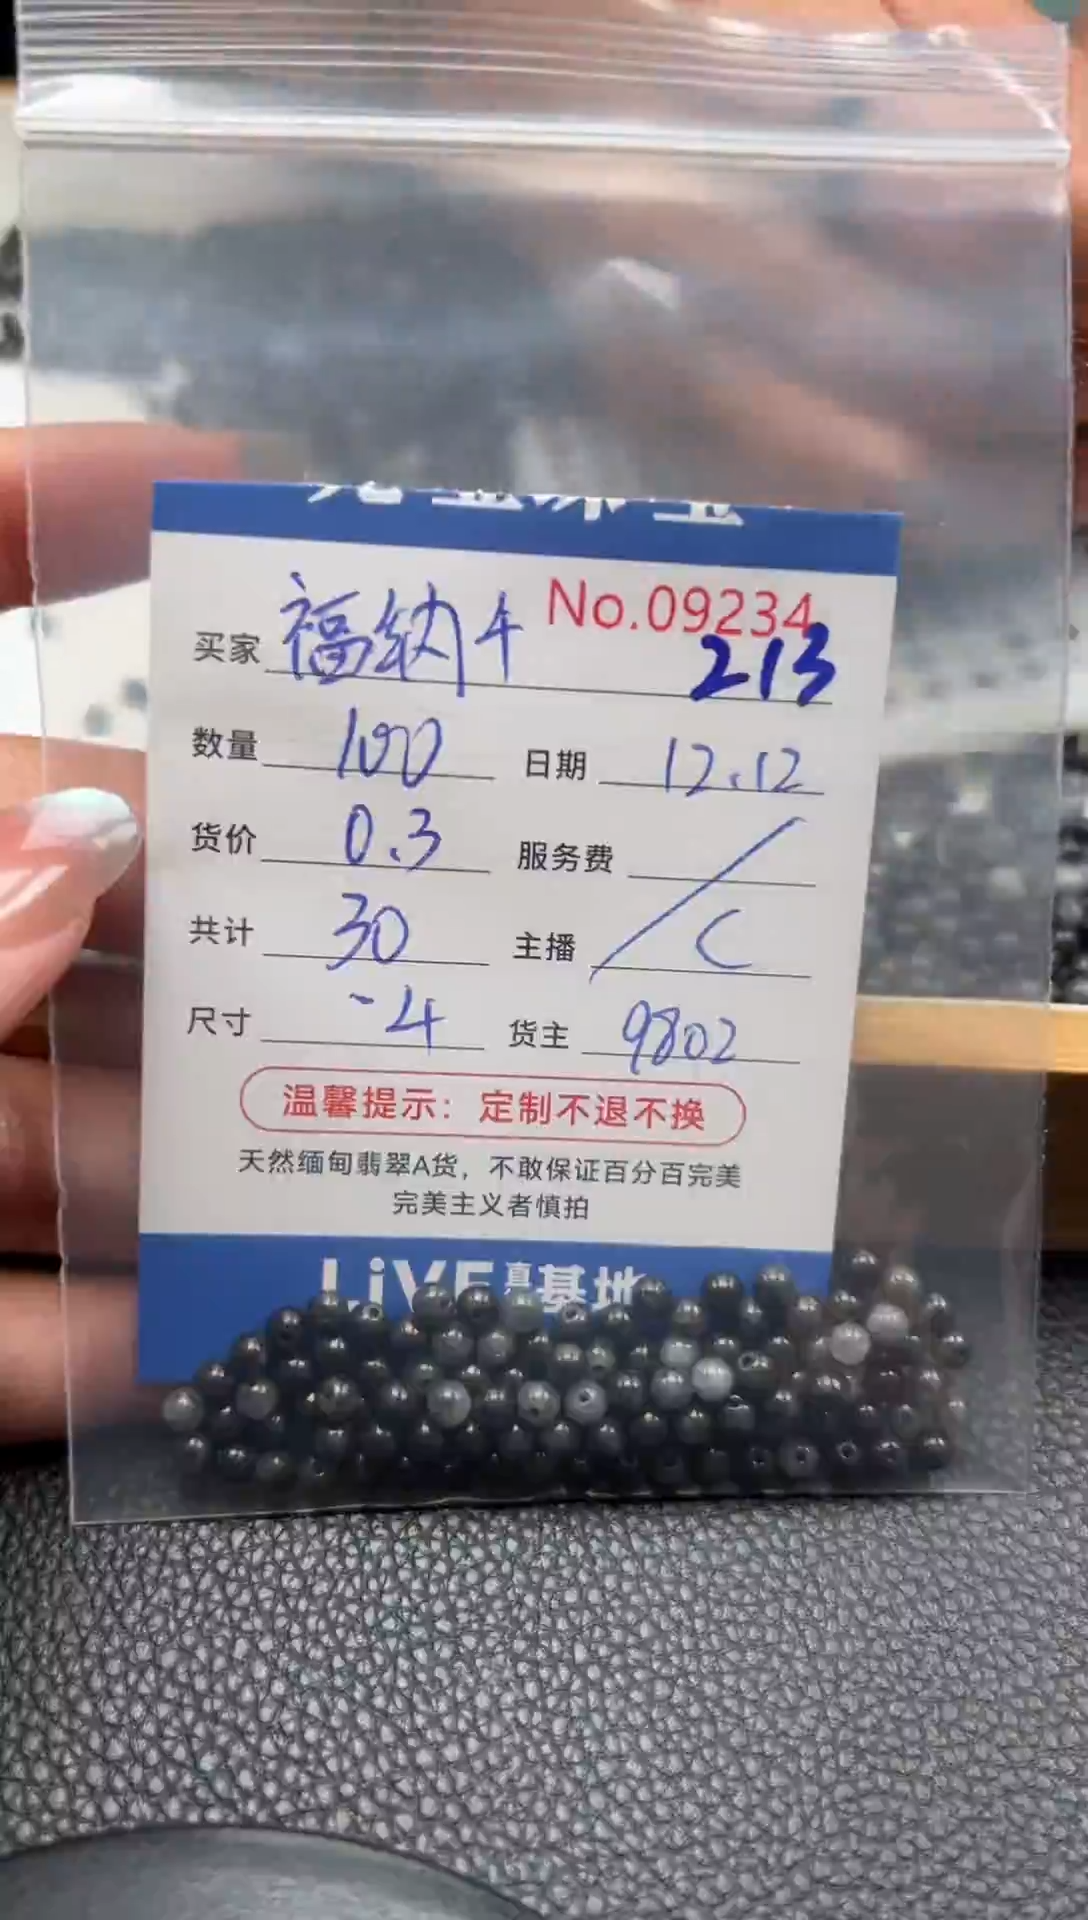 No.09234
买家 福纳牛 213
数量 100 日期 12.12
货价 0.3 服务费 /
共计 30 主播 C
尺寸 -4 货主 9802
温馨提示：定制不退不换
天然缅甸翡翠A货，不敢保证百分百完美
完美主义者慎拍
LiVE 基地